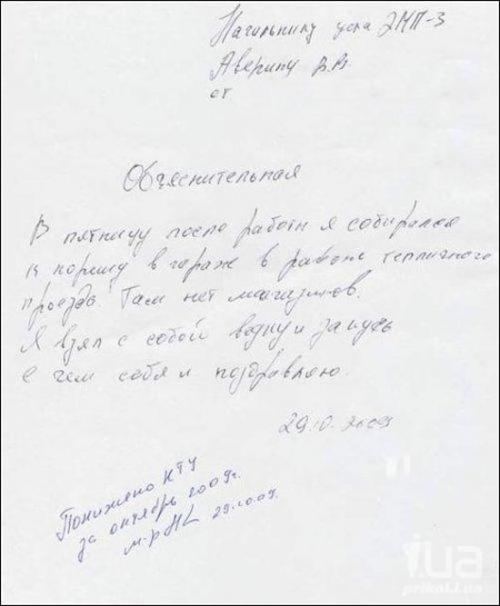 Начальнику уч-ка ЭМП-3
Аверину В.В.
от
Объяснительная
В пятницу после работы я собирался
к корешу в гараж в районе тепличного
проезда. Там нет магазинов.
Я взял с собой водку и закусь
с чем себя и поздравляю.
29.10.2009
Понижено КТУ
за октябрь 2009г.
м-р 29.10.09.
i.ua
prikol.i.ua